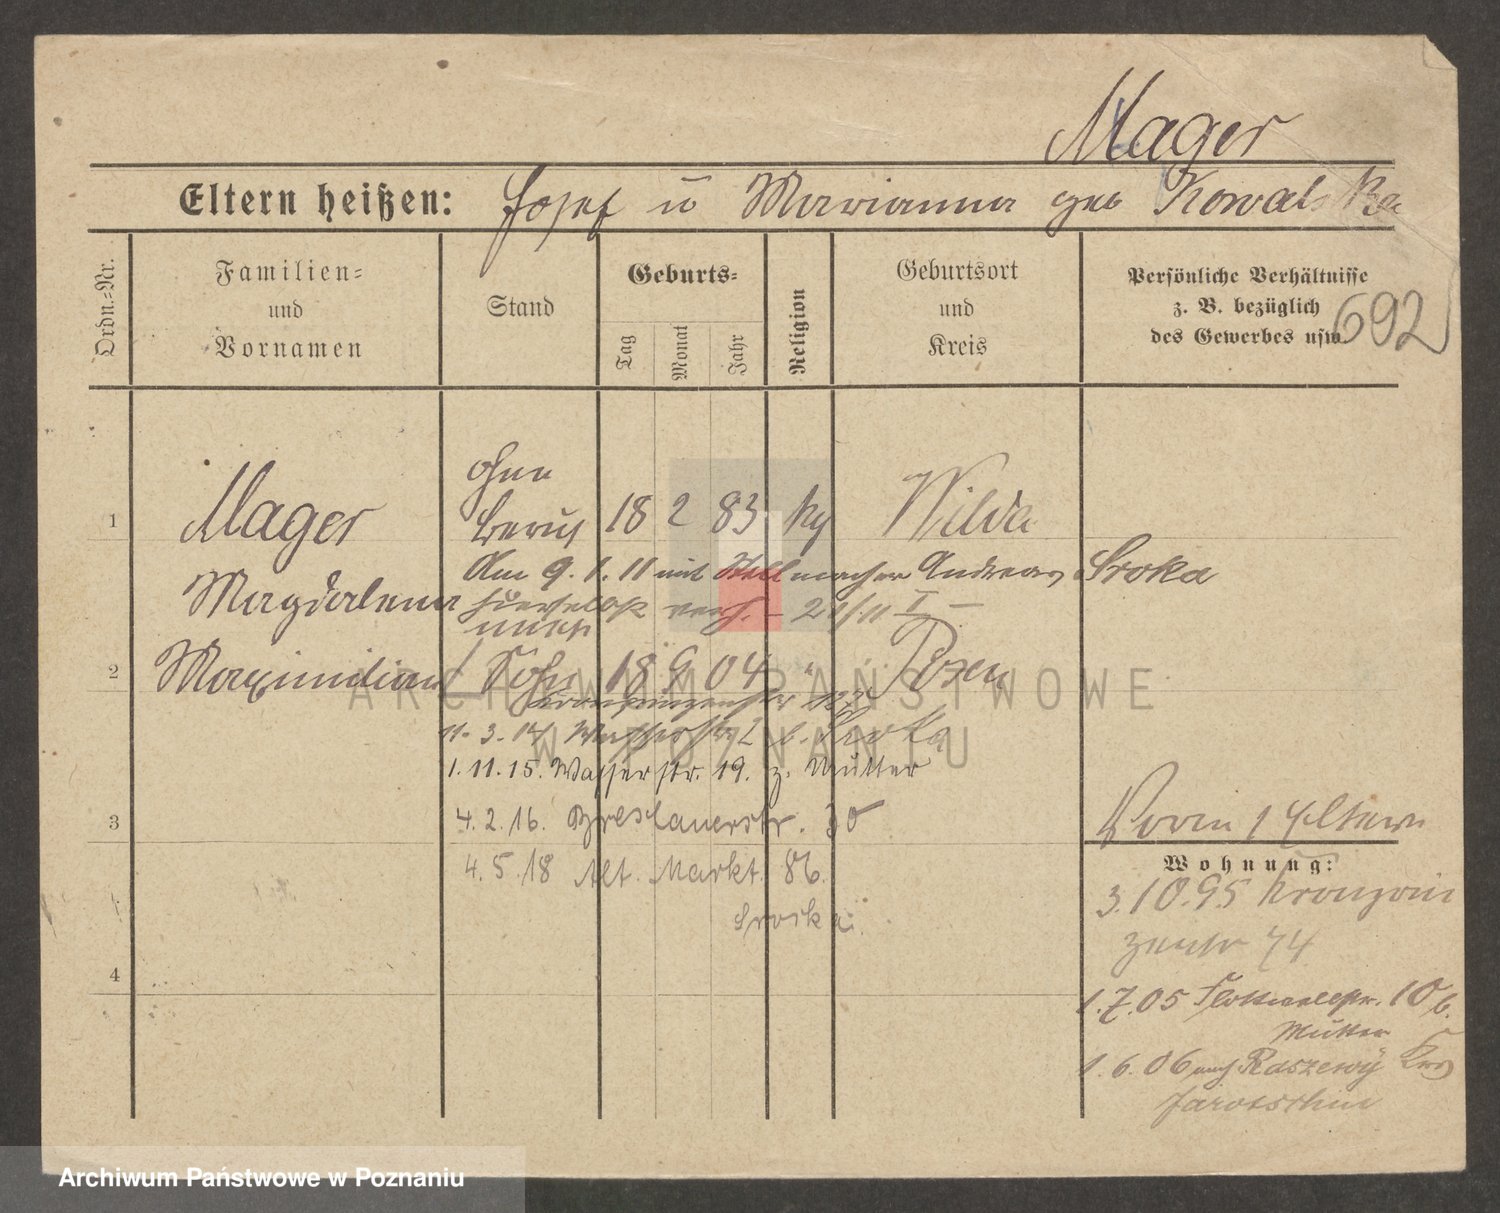 Mager
Eltern heißen: Josef u Marianna geb Kowalska
Ordn.-Nr.
Familien-
und
Vornamen
Stand
Geburts-
Tag
Monat
Jahr
Religion
Geburtsort
und
Kreis
Persönliche Verhältnisse
z. B. bezüglich
des Gewerbes usw
692
ohne
1 Mager Beruf 18 2 83 Wilda
Am 9. 1. 11 mit Stellmacher Andreas Sroka
Magdalena
2 Maximilian Sohn 18 9 04 " Posen
11. 3. 14 Wasserstr 2 b. Sroka
1. 11. 15. Wasserstr. 19. z. Mutter
3 4. 2. 16. Breslauerstr. 30
4. 5. 18 Alt. Markt. 86.
Sroka
4
1 Eltern
Wohnung:
3. 10. 95 Kronprin
zenstr 74
1. 7. 05 Flottwellstr. 10 b.
Mutter
1. 6. 06 nach Raszewy Krs
Jarotschin
ARCHIWUM PAŃSTWOWE
W POZNANIU
Archiwum Państwowe w Poznaniu